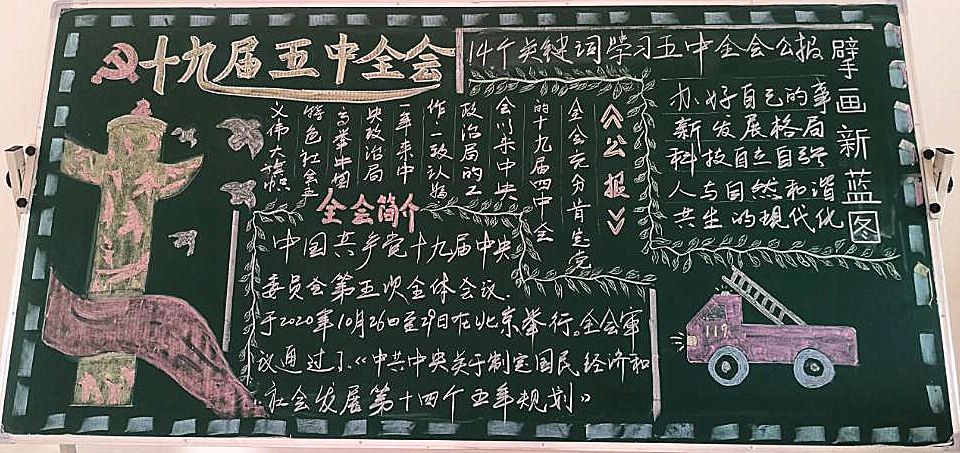 十九届五中全会
14个关键词学习五中全会公报
擘画新蓝图
办好自己的事
新发展格局
科技自立自强
人与自然和谐
共生的现代化
《公报》
全会充分肯定党
的十九届四中全
会以来中央
政治局的工
作一致认为
一年来中
央政治局
高举中国
特色社会主
义伟大旗帜
全会简介
中国共产党十九届中央
委员会第五次全体会议.
于2020年10月26日至29日在北京举行。全会审
议通过了《中共中央关于制定国民经济和
社会发展第十四个五年规划》
119